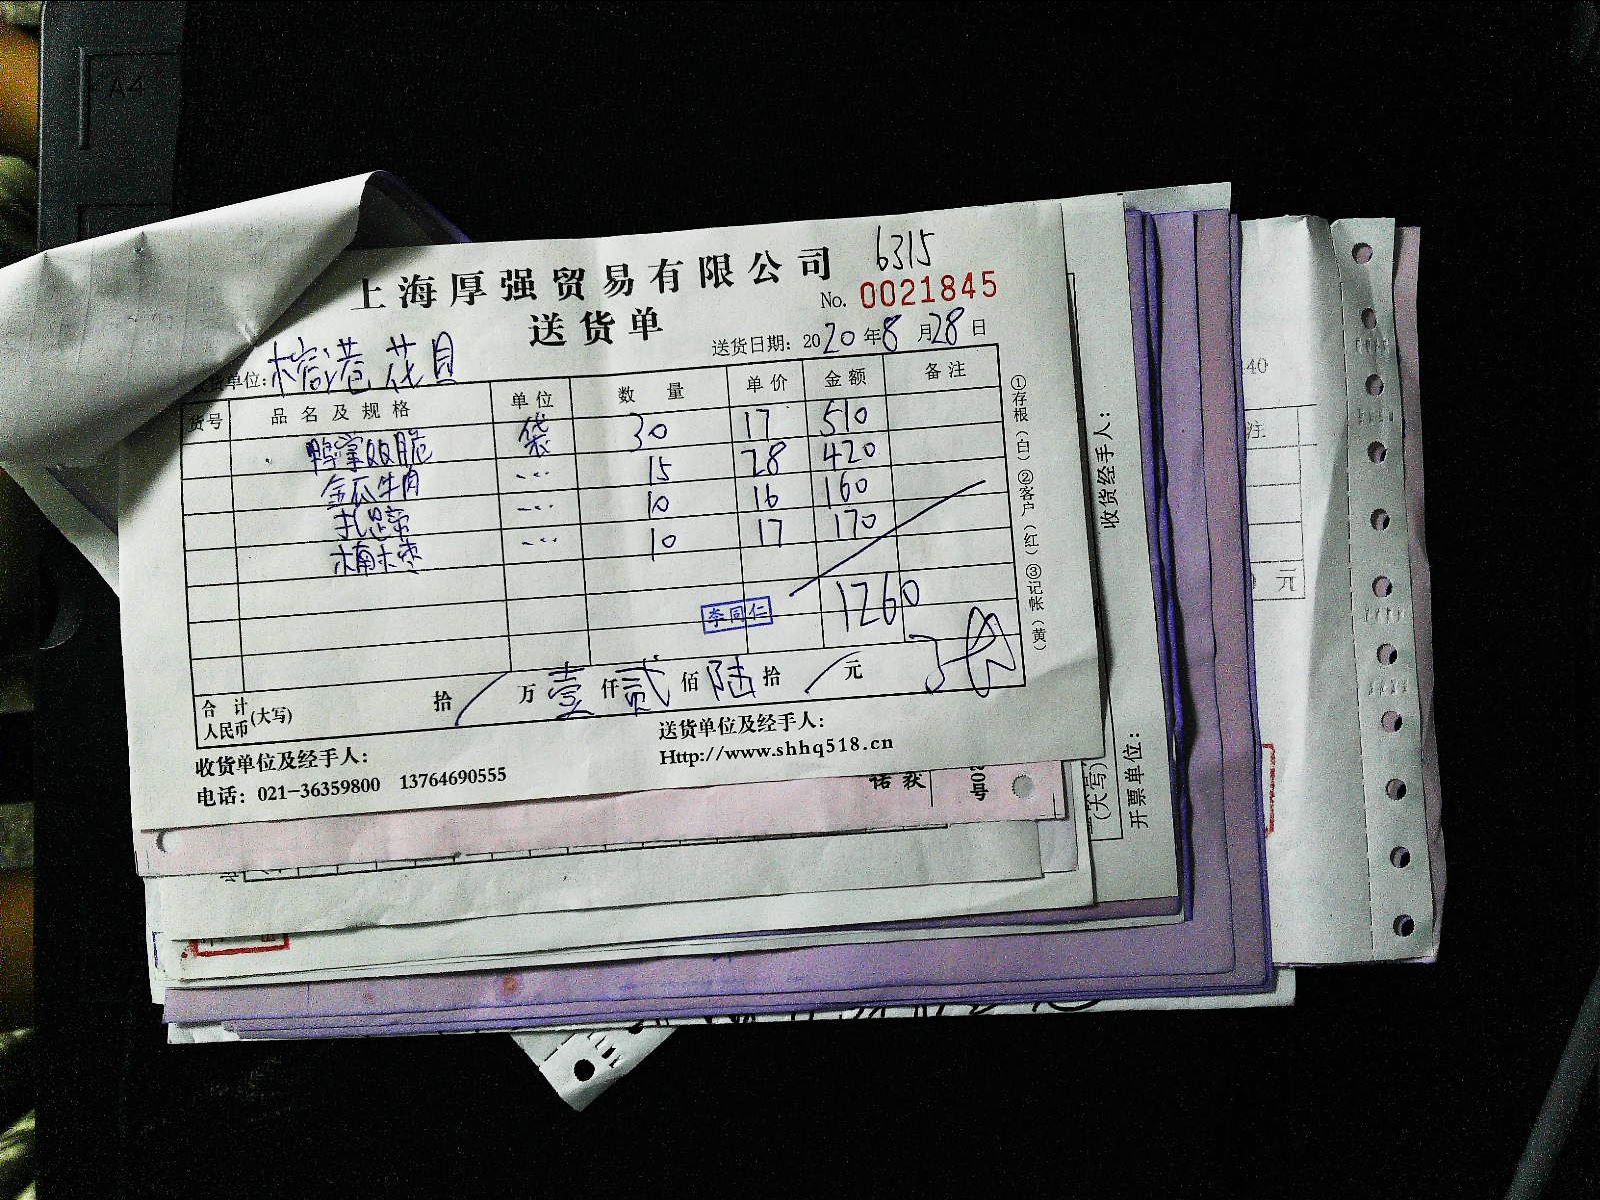 A4
上海厚强贸易有限公司 6315
No. 0021845
送货单
送货日期: 2020年8月28日
单位:
货号 品名及规格 单位 数量 单价 金额 备注
袋 30 17 510
金瓜牛肉 〃 15 28 420
〃 10 16 160
〃 10 17 170
1260
李同仁
合计人民币(大写) 拾 万 壹 仟 贰 佰 陆 拾 元
收货单位及经手人:
送货单位及经手人:
电话: 021-36359800 13764690555
Http://www.shhq518.cn
①存根(白) ②客户(红) ③记帐(黄)
收货经手人:
开票单位:
(大写)
40
注
元